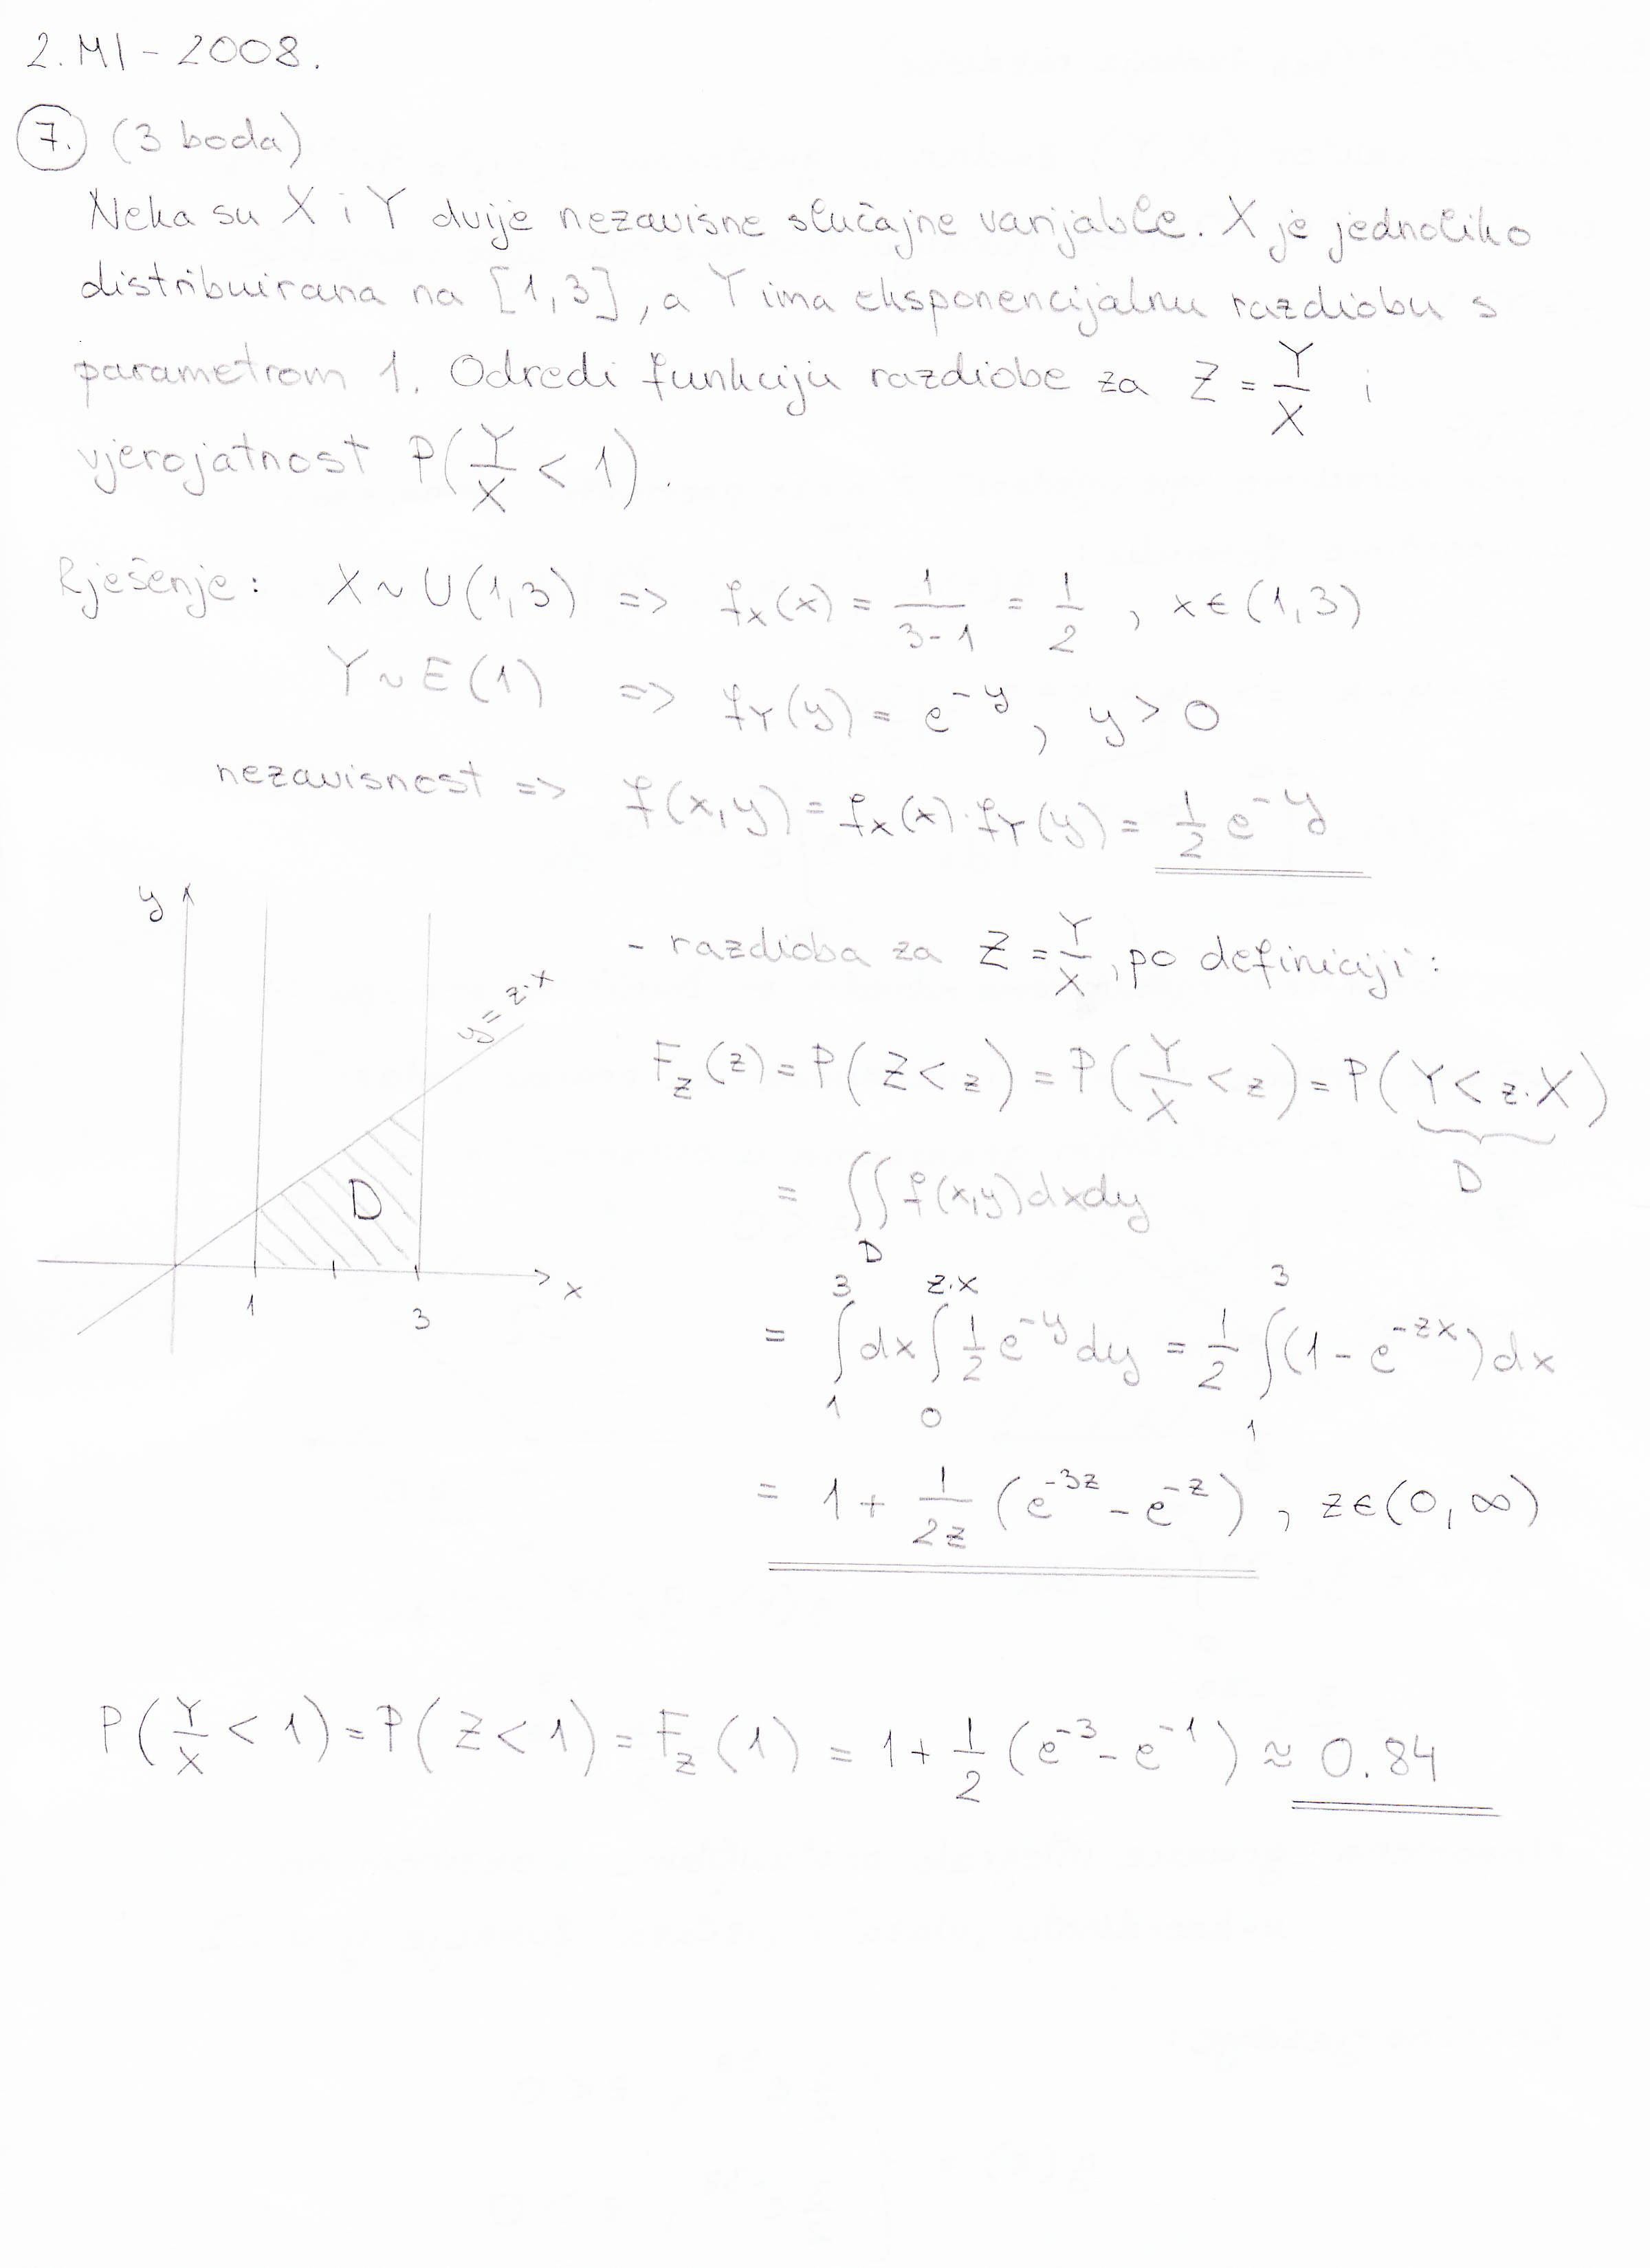 2. MI - 2008.
7. (3 boda)
Neka su X i Y dvije nezavisne slučajne varijable. X je jednoliko
distribuirana na [1,3], a Y ima eksponencijalnu razdiobu s
parametrom 1. Odredi funkciju razdiobe za Z = Y/X i
vjerojatnost P(Y/X < 1).
Rješenje: X ~ U(1,3) => f_X(x) = 1/(3-1) = 1/2 , x ∈ (1,3)
Y ~ E(1) => f_Y(y) = e^{-y}, y > 0
nezavisnost => f(x,y) = f_X(x)·f_Y(y) = 1/2 e^{-y}
y
y = z·x
D
1
3
x
- razdioba za Z = Y/X, po definiciji:
F_Z(z) = P(Z < z) = P(Y/X < z) = P(Y < z·X)
D
= ∬_D f(x,y) dxdy
= ∫_1^3 dx ∫_0^{z·x} 1/2 e^{-y} dy = 1/2 ∫_1^3 (1 - e^{-zx}) dx
= 1 + 1/(2z) (e^{-3z} - e^{-z}) , z ∈ (0, ∞)
P(Y/X < 1) = P(Z < 1) = F_Z(1) = 1 + 1/2 (e^{-3} - e^{-1}) ≈ 0.84